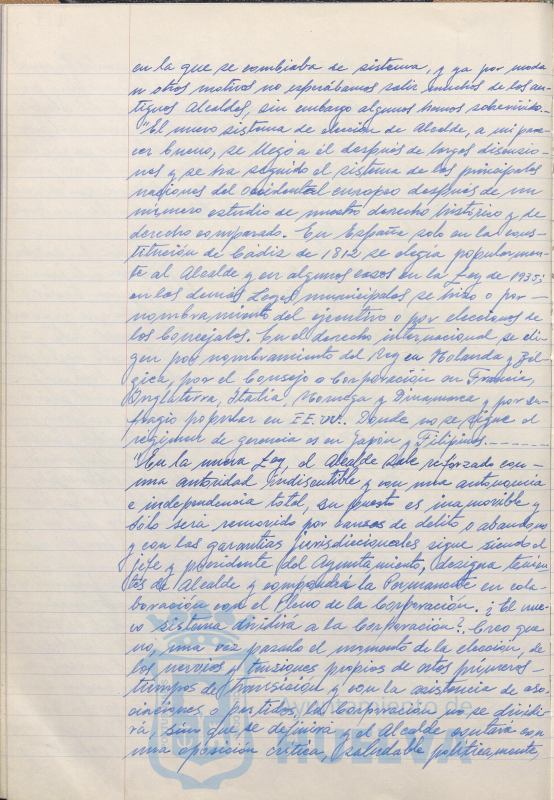 en la que se cambiaba de sistema, y ya por moda
u otros motivos no esperábamos salir muchos de los an-
tiguos Alcaldes, sin embargo algunos hemos sobrevivido.-
"El nuevo sistema de elección de Alcalde, a mi pare-
cer bueno, se llegó a él después de largas discusio-
nes y se ha seguido el sistema de las principales
naciones del occidental europeo después de un
minucioso estudio de nuestro derecho histórico y de
derecho comparado. En España solo en la cons-
titución de Cádiz de 1812 se elegía popularmen-
te al Alcalde y en algunos casos en la Ley de 1935;
en las demás Leyes municipales se hizo o por -
nombramiento del ejecutivo o por elecciones de
los Concejales. En el derecho internacional se eli-
gen por nombramiento del Rey en Holanda y Bél-
gica, por el Consejo o Corporación en Francia,
Inglaterra, Italia, Noruega y Dinamarca y por su-
fragio popular en EE.UU.. Donde no se sigue el
régimen de gerencia es en Japón y Filipinas.-------
"En la nueva Ley, el Alcalde sale reforzado con -
una autoridad indiscutible y con una autonomía
e independencia total, su puesto es inamovible y
sólo será removido por causas de delito o abandono
y con las garantías jurisdiccionales sigue siendo el
jefe y presidente del Ayuntamiento, designa tenien-
tes de Alcalde y compondrá la Permanente en cola-
boración con el Pleno de la Corporación. ¿El nue-
vo sistema dividirá a la Corporación?. Creo que
no, una vez pasado el momento de la elección, de
los nervios y tensiones propios de estos primeros -
tiempos de transición y con la existencia de aso-
ciaciones o partidos, la Corporación no se dividi-
rá, sino que se definirá y el Alcalde contará con
una oposición crítica, saludable políticamente,
Ayuntamiento de
HUELVA